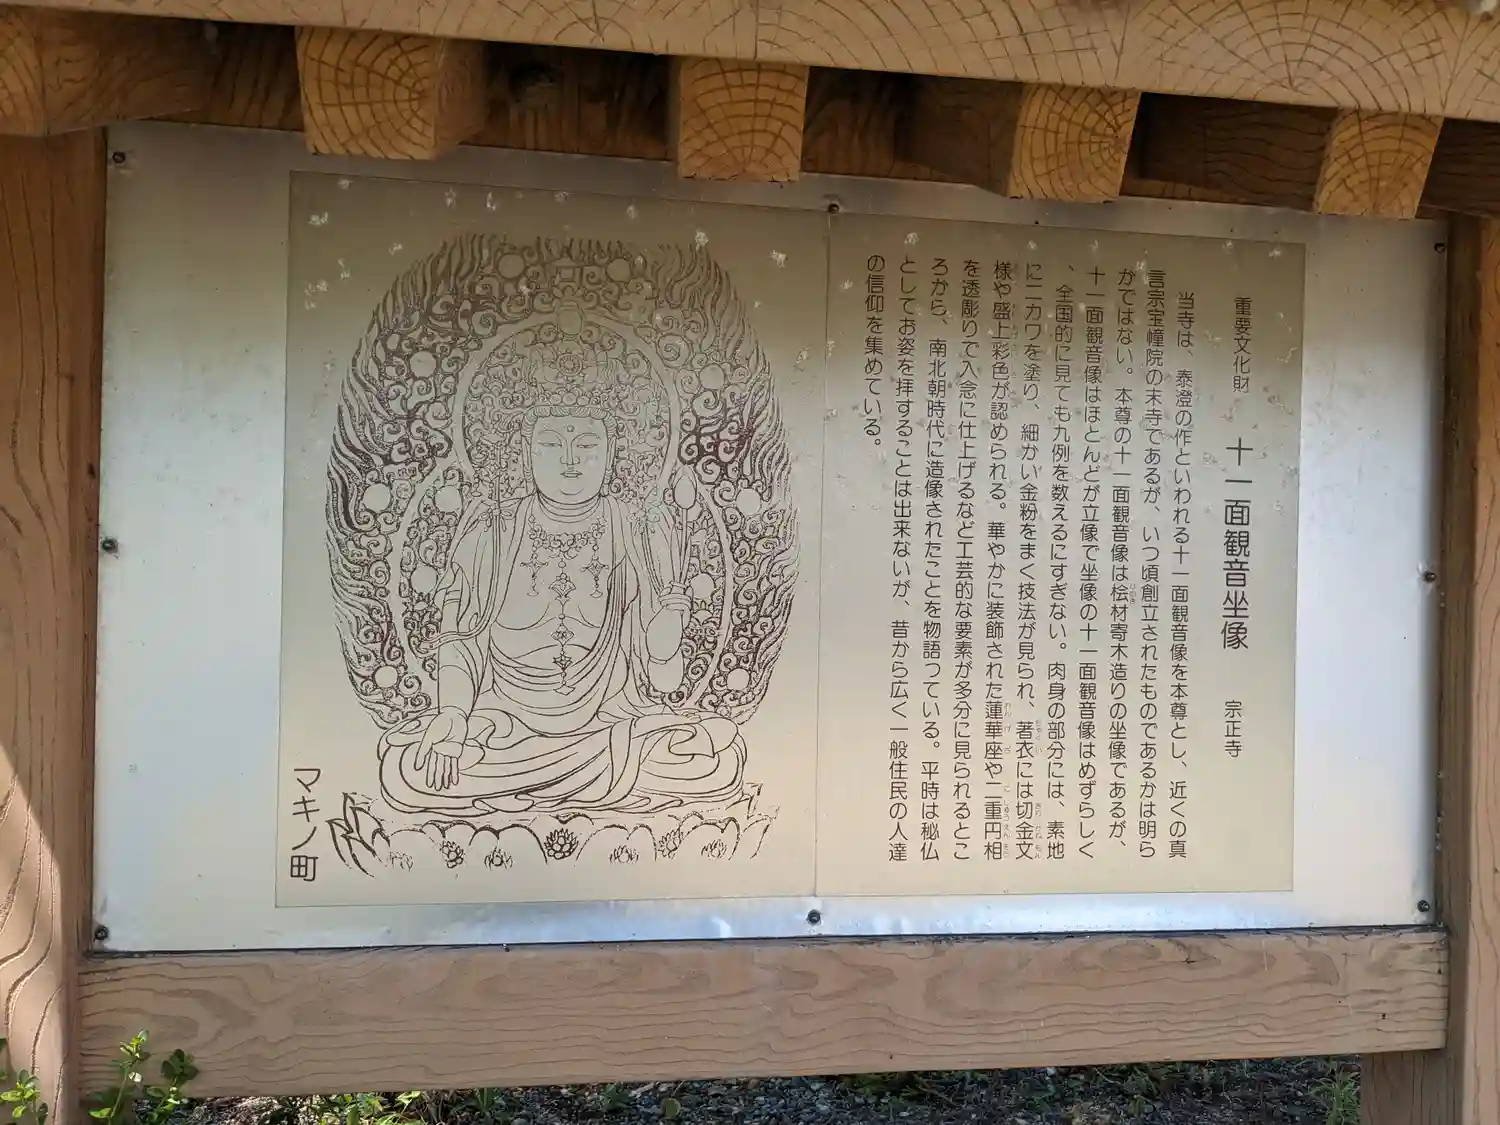 重要文化財　十一面観音坐像　宗正寺
当寺は、泰澄の作といわれる十一面観音像を本尊とし、近くの真
言宗宝幢院の末寺であるが、いつ頃創立されたものであるかは明ら
かではない。本尊の十一面観音像は桧材寄木造りの坐像であるが、
十一面観音像はほとんどが立像で坐像の十一面観音像はめずらしく
、全国的に見ても九例を数えるにすぎない。肉身の部分には、素地
にニカワを塗り、細かい金粉をまく技法が見られ、著衣には切金文
様や盛上彩色が認められる。華やかに装飾された蓮華座や二重円相
を透彫りで入念に仕上げるなど工芸的な要素が多分に見られるとこ
ろから、南北朝時代に造像されたことを物語っている。平時は秘仏
としてお姿を拝することは出来ないが、昔から広く一般住民の人達
の信仰を集めている。
マキノ町